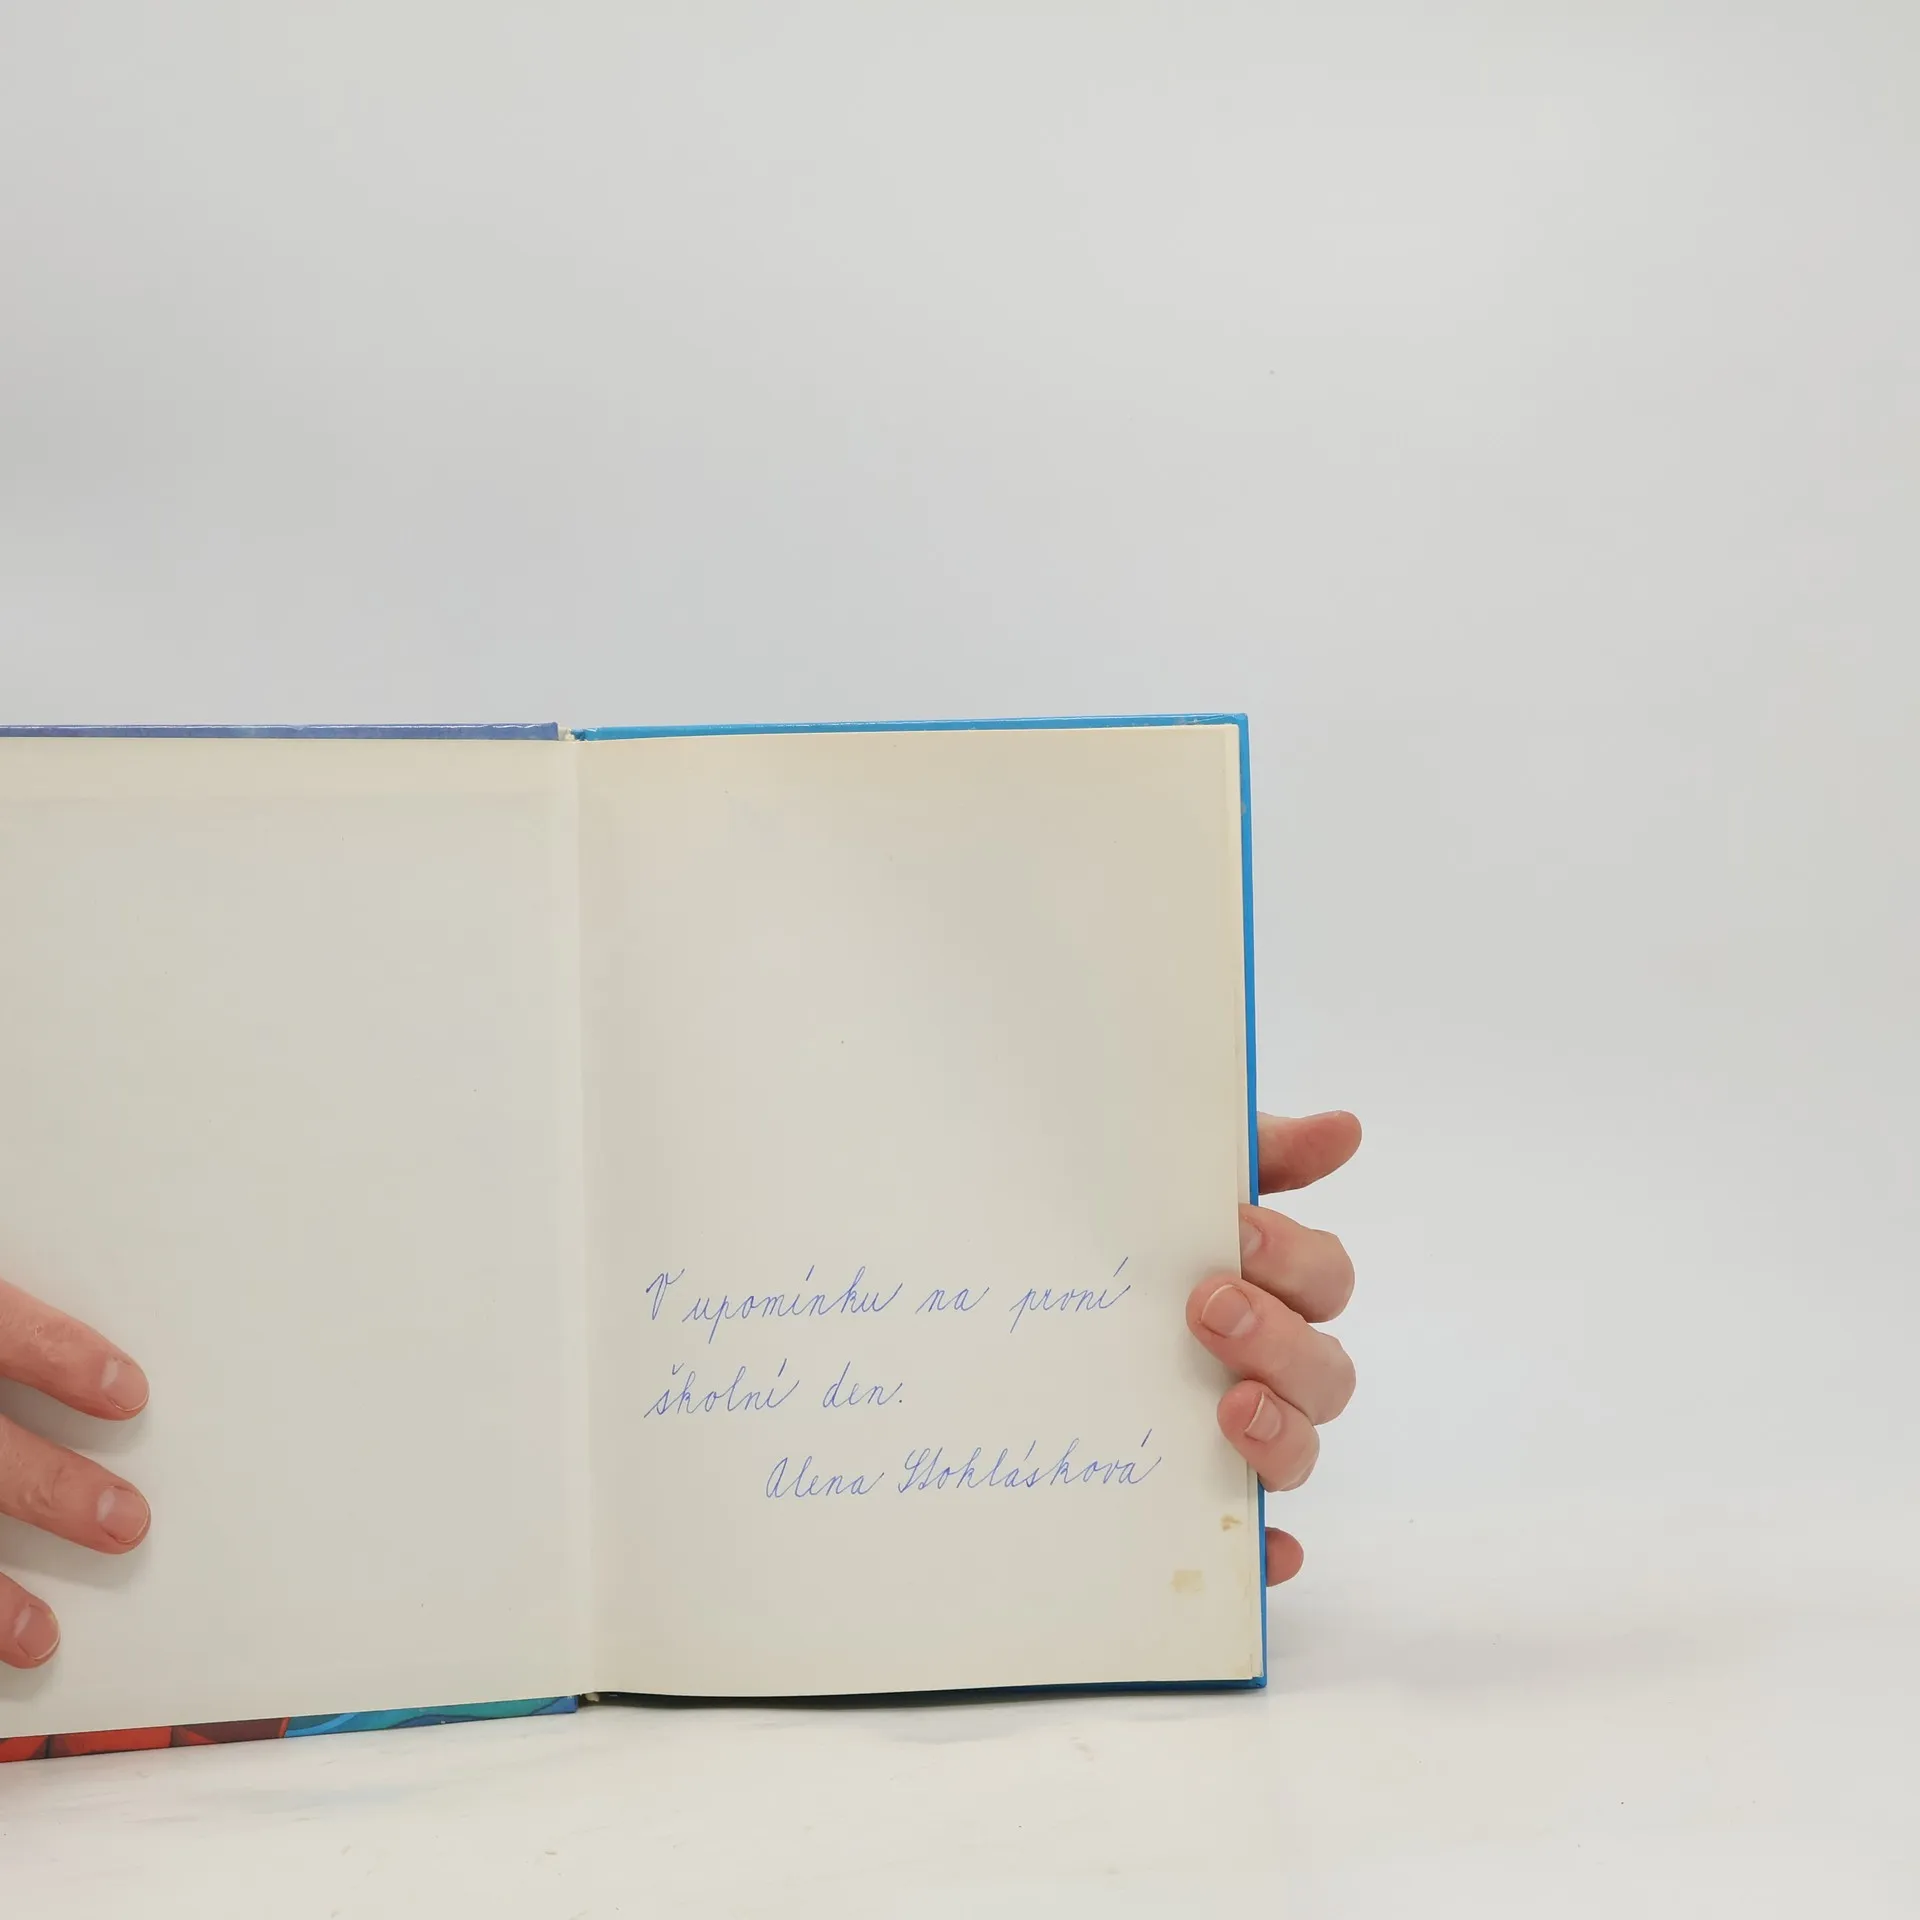 V upomínku na první
školní den.
Alena Stoklásková